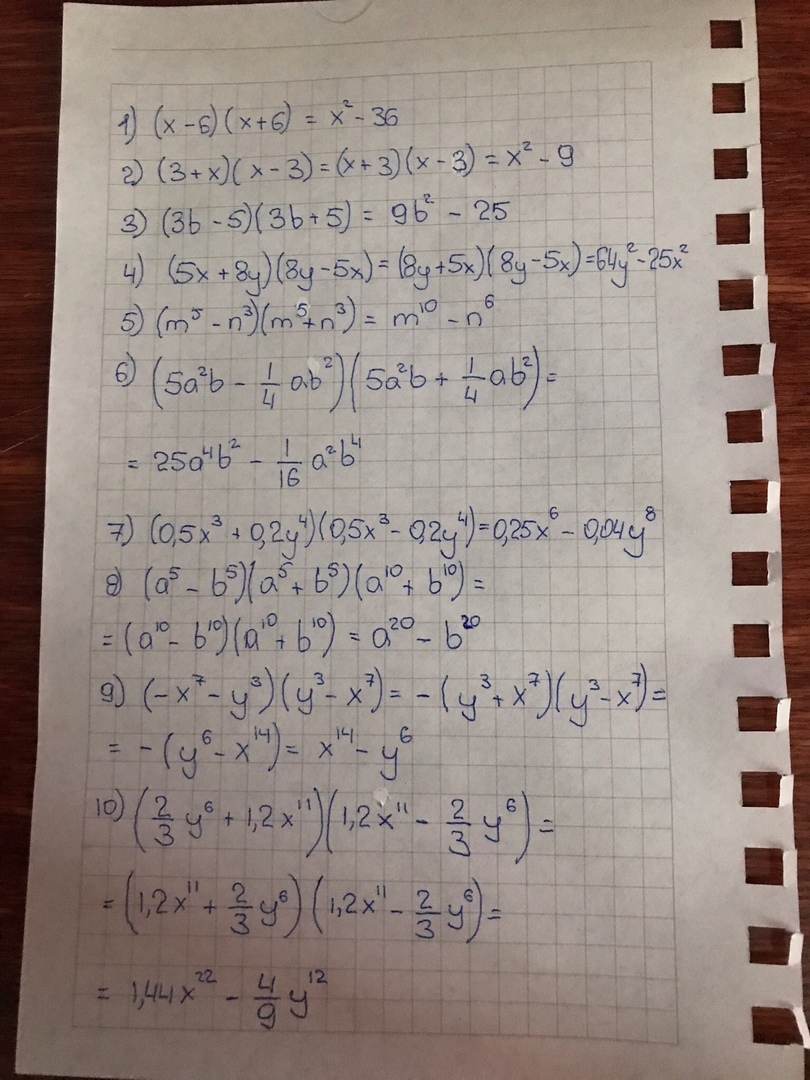 1) (x-6)(x+6) = x² - 36
2) (3+x)(x-3) = (x+3)(x-3) = x² - 9
3) (3b-5)(3b+5) = 9b² - 25
4) (5x+8y)(8y-5x) = (8y+5x)(8y-5x) = 64y² - 25x²
5) (m⁵ - n³)(m⁵ + n³) = m¹⁰ - n⁶
6) (5a²b - 1/4 ab²)(5a²b + 1/4 ab²) =
= 25a⁴b² - 1/16 a²b⁴
7) (0,5x³ + 0,2y⁴)(0,5x³ - 0,2y⁴) = 0,25x⁶ - 0,04y⁸
8) (a⁵ - b⁵)(a⁵ + b⁵)(a¹⁰ + b¹⁰) =
= (a¹⁰ - b¹⁰)(a¹⁰ + b¹⁰) = a²⁰ - b²⁰
9) (-x⁷ - y³)(y³ - x⁷) = -(y³ + x⁷)(y³ - x⁷) =
= -(y⁶ - x¹⁴) = x¹⁴ - y⁶
10) (2/3 y⁶ + 1,2x¹¹)(1,2x¹¹ - 2/3 y⁶) =
= (1,2x¹¹ + 2/3 y⁶)(1,2x¹¹ - 2/3 y⁶) =
= 1,44x²² - 4/9 y¹²